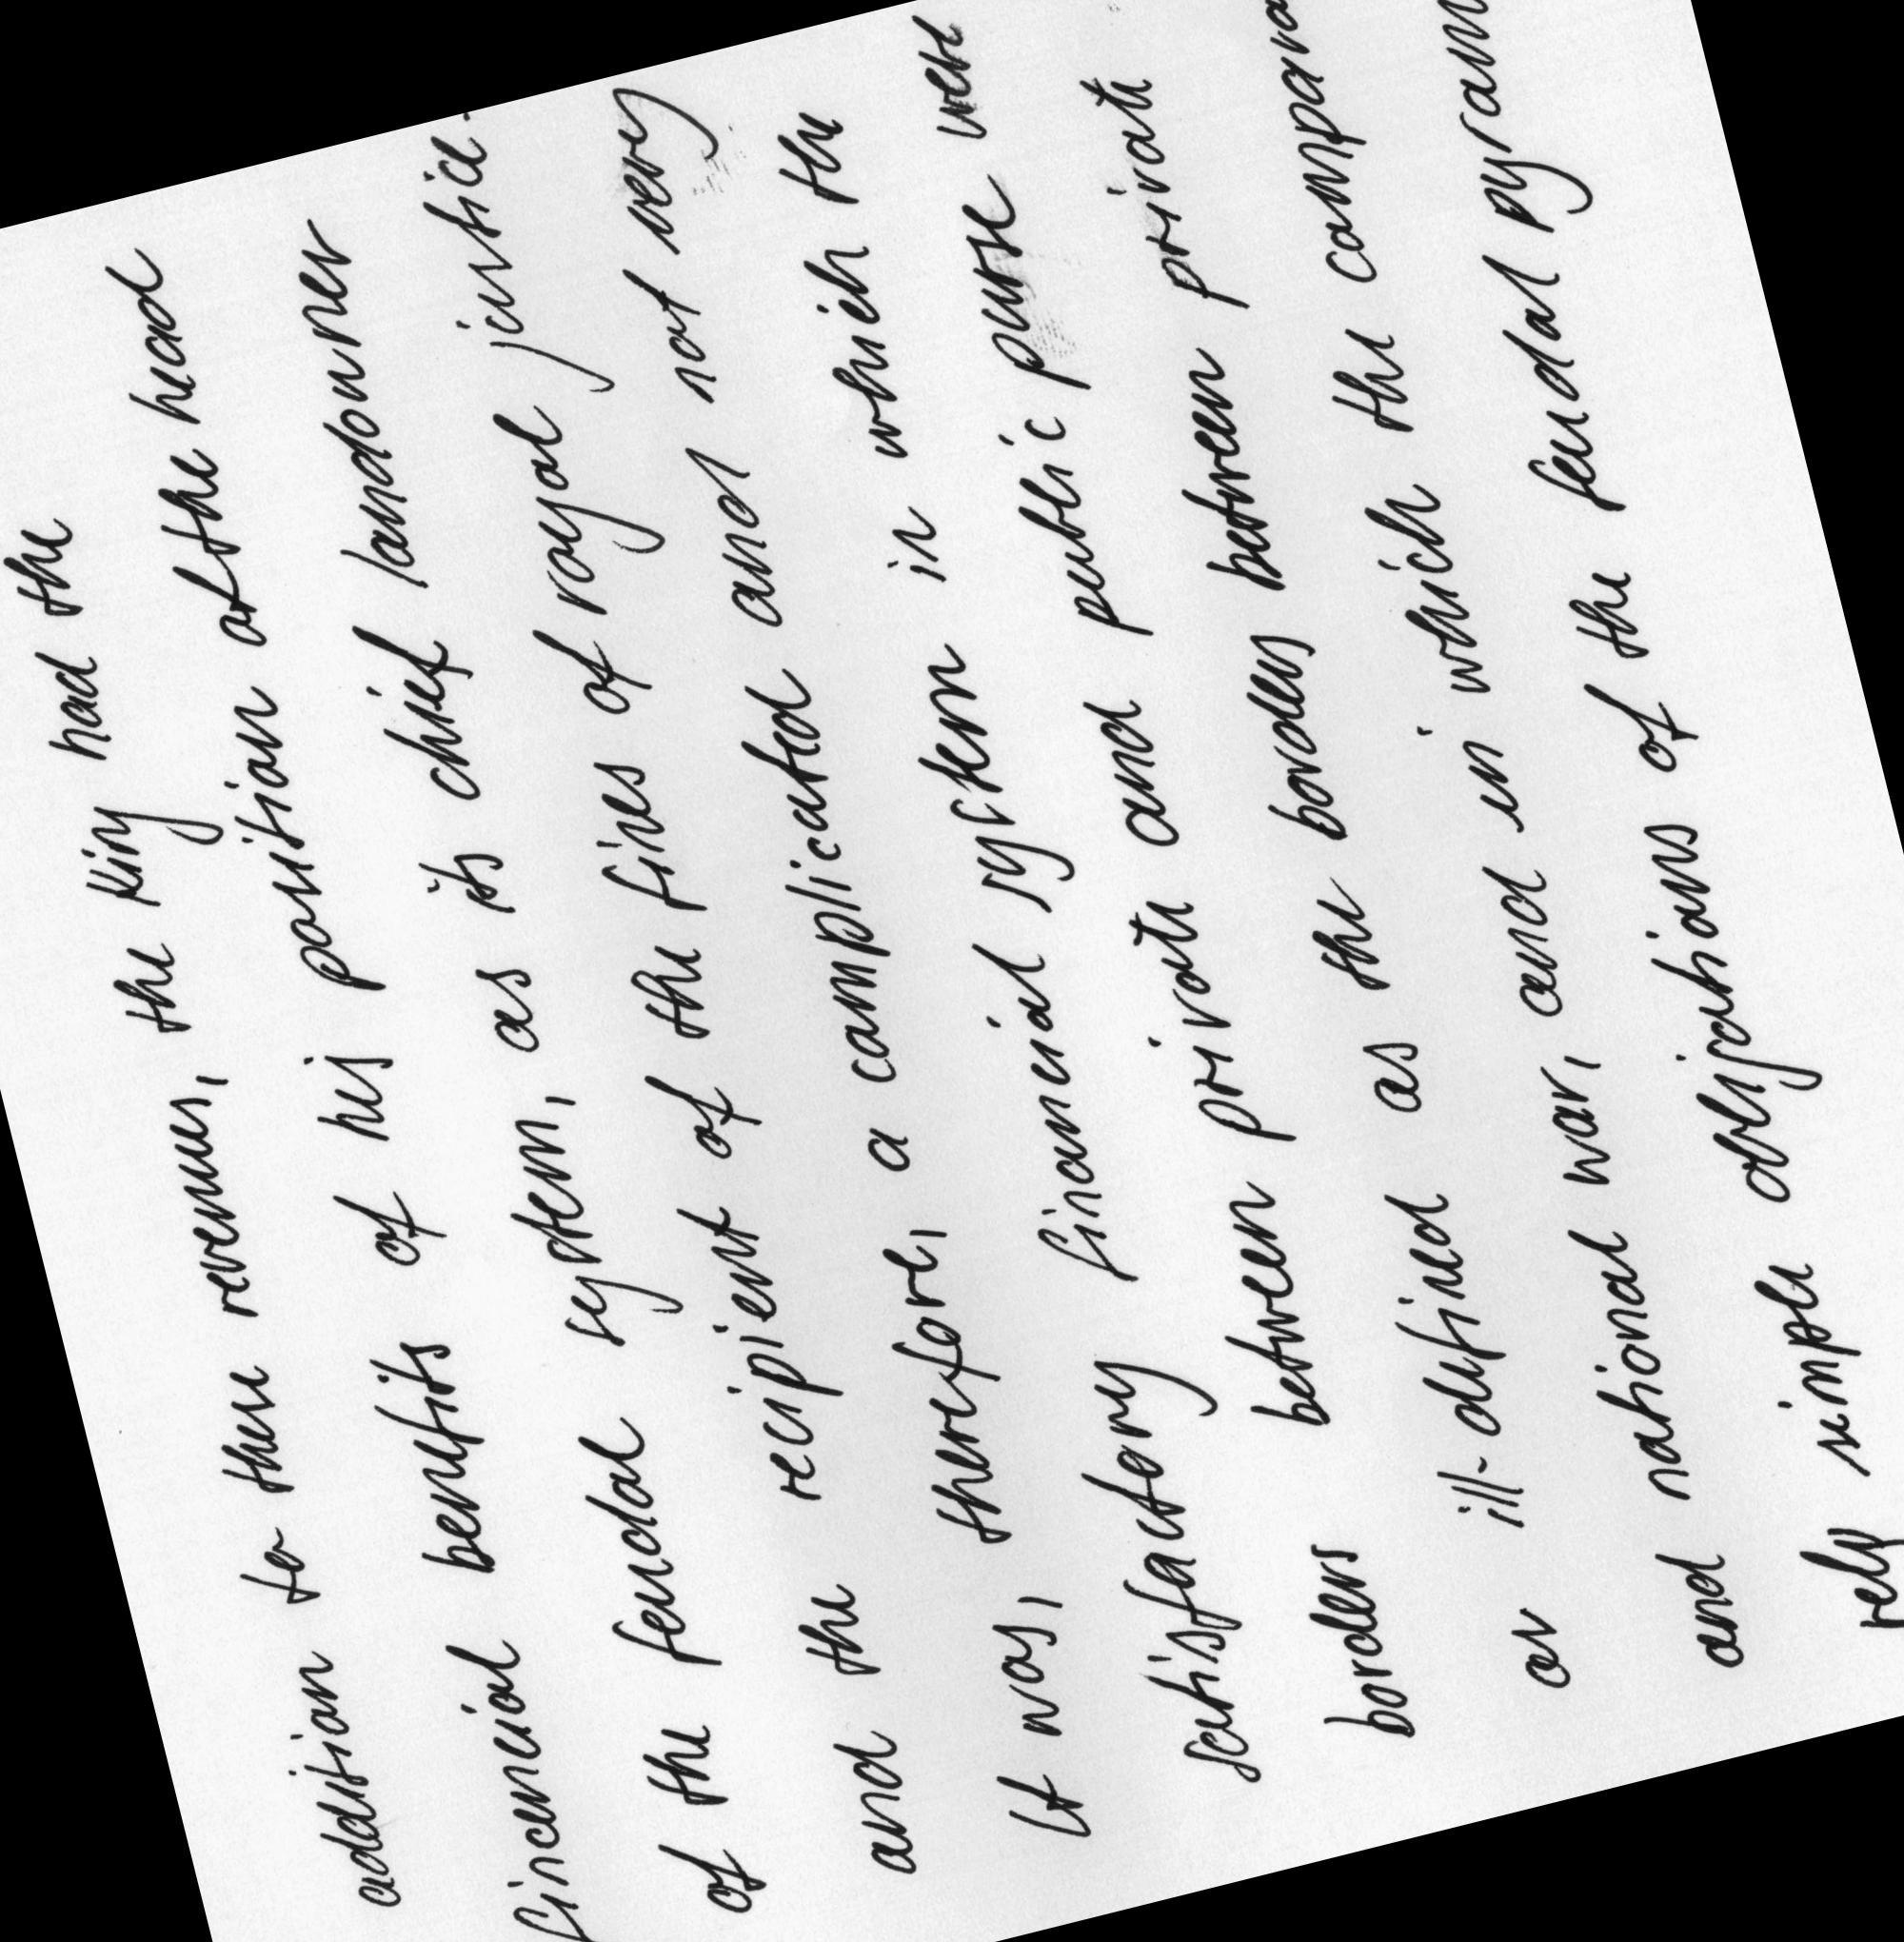 addition to these revenues, the King had the
financial benefits of his position at the head
of the feudal system, as its chief landowner
and the recipient of the fines of royal justice.
It was, therefore, a complicated and not very
satisfactory financial system in which the
borders between private and public purse were
as ill-defined as the borders between private
and national war, and in which the compara
vely simple obligations of the feudal pyram